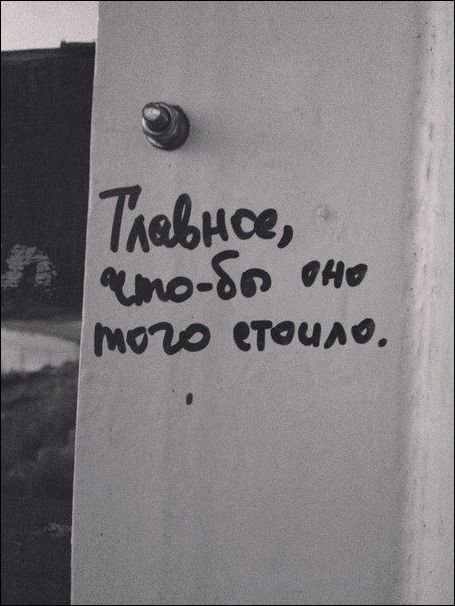 Главное,
что-бы оно
того стоило.